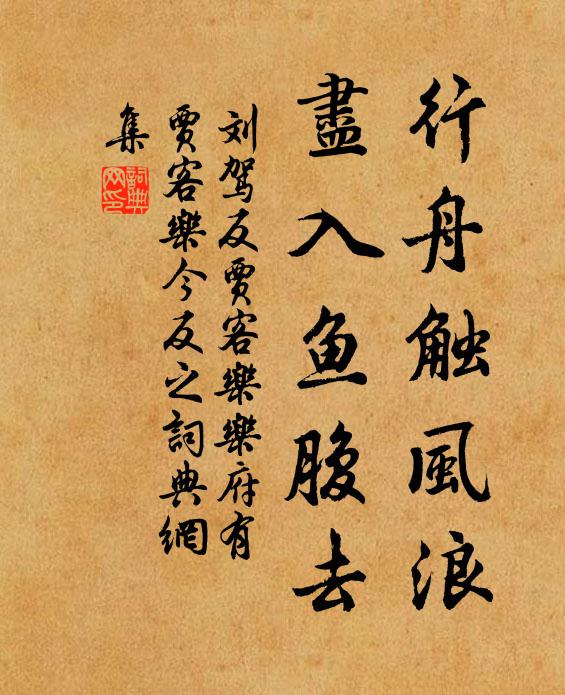 行舟触風浪
盡入鱼腹去
刘驾反贾客樂樂府有
贾客樂今反之詞典網
集
詞典網印